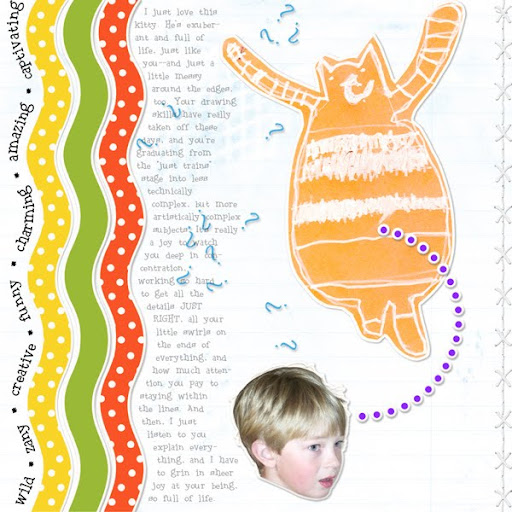 wild ▪ zany ▪ creative ▪ funny ▪ charming ▪ amazing ▪ captivating
I just love this
kitty. He's exuber-
ant and full of
life, just like
you--and just a
little messy
around the edges,
too. Your drawing
skills have really
taken off these
days, and you're
graduating from
the 'just trains'
stage into less
technically
complex, but more
artistically complex
subjects. It's really
a joy to watch
you deep in con-
centration,
working so hard
to get all the
details JUST
RIGHT, all your
little swirls on
the ends of
everything, and
how much atten-
tion you pay to
staying within
the lines. And
then, I just
listen to you
explain every-
thing, and I have
to grin in sheer
joy at your being,
so full of life.